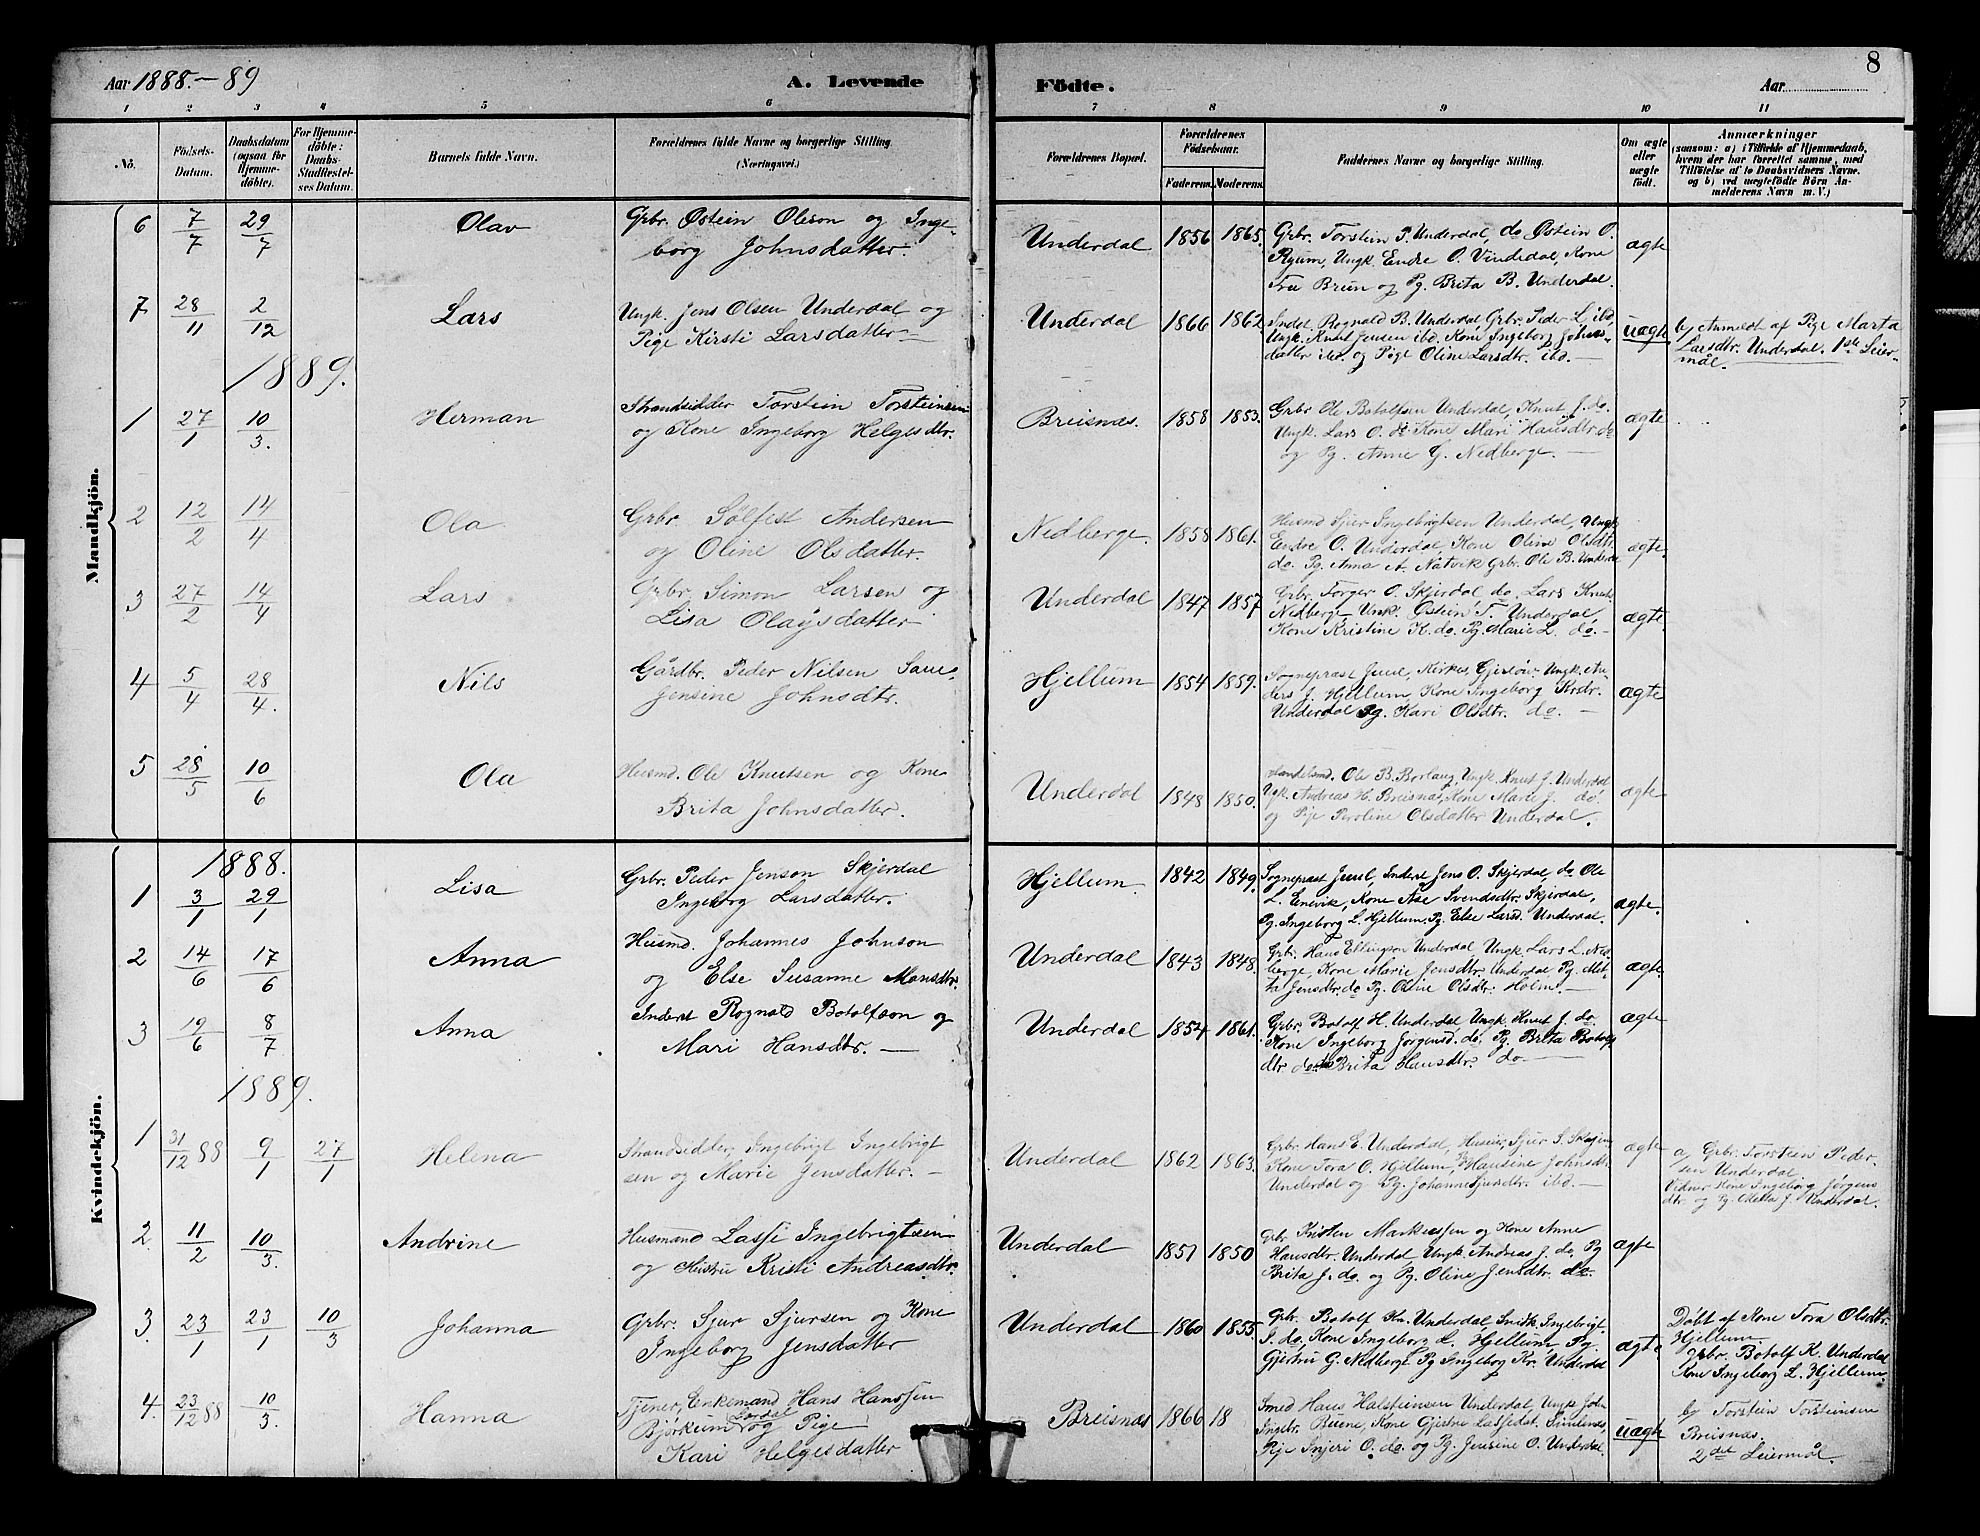 8
Aar 1888.-89
A. Levende
Födte.
Aar
1 2 3 4 5 6 7 8 9 10 11
No.
Födsels-Datum.
Daabsdatum (ogsaa for Hjemme-döbte).
For Hjemme-döbte: Daabs-Stadfæstel-ses Datum.
Barnets fulde Navn.
Forældrenes fulde Navne og borgerlige Stilling. (Næringsvei.)
Forældrenes Bopæl.
Forældrenes Födselsaar.
Faderens. Moderens.
Faddernes Navne og borgerlige Stilling.
Om ægte eller uægte födt.
Anmærkninger
(saasom: a) i Tilfælde af Hjemmedaab,
hvem der har forrettet samme, med
Tilföielse af to Daabsvidners Navne.
og b) ved uægtefödte Börn An-
melderens Navn m. V.)
Mandkjön.
6 7/7 29/7 Olav Grbr. Østein Oleson og Inge-
borg Johnsdatter.
Underdal 1856 1865. Grbr. Torstein P. Underdal, do Østein O.
Ryum, Ungk. Endre O. Vindedal, Kone
Fru Brun og Pg. Brita B. Underdal.
ægte
7 28/11 2/12 Lars Ungk. Jens Olsen Underdal og
Pige Kirsti Larsdatter
Underdal 1866 1862. Inderst Rognald B. Underdal Grbr. Peder L. ibd.
Ungk. Knut Jensen ibd. Kone Ingeborg Johans-
datter ibd. og Pige Oline Larsdtr. ibd.
uægte b, Anmeldt af Pige Marta
Larsdtr. Underdal. 1ste Leier-
mål.
1889.
1 27/1 10/3. Herman Strandsidder Torstein Torsteinsen
og Kone Ingeborg Helgesdtr.
Breisnæs. 1858 1853. Grbr Ole Botolfsen Underdal, Knut J. do.
Ungk. Lars O. do Kone Mari Hansdtr. do
og Pg. Anne G. Nedberge.
ægte
2 12/2 14/4 Ola Grbr. Sölfest Andersen
og Oline Olsdatter.
Nedberge 1858 1861. Husmd Sjur Ingebrigtsen Underdal, Ungk.
Endre O. Underdal, Kone Oline Olsdtr.
do. Pg. Anna A. Nåtvik Grbr. Ole B. Underdal
ægte
3 27/2 14/4 Lars Grbr. Simon Larsen og
Lisa Olaysdatter
Underdal 1847 1857 Grbr. Torger O. Skjerdal do, Lars Knut.
Nedberge Ungk. Østein T. Underdal,
Kone Kristine K. do. Pg. Marie L. do.
ægte
4 5/4 28/4. Nils Gårdbr. Peder Nilsen
Jensine Johnsdtr.
Hjellum 1854 1859. Sogneprast Juul, Ungk. An-
ders J. Hjellum, Kone Ingeborg
Underdal Pg. Kari Olsdtr. do.
ægte
5 28/5 10/6 Ola Husmd. Ole Knutsen og Kone
Brita Johnsdatter.
Underdal 1848 1850. Handelsmd. Ole B. Borlaug, Ungk. Knut J. Underdal
Ugk. Andreas H. Breisnæs, Kone Marie J. do.
og Pige Peroline Olsdatter Underdal.
ægte
Kvindekjön.
1888.
1 3/1 29/1 Lisa Grbr. Peder Jenson Skjerdal
Ingeborg Larsdatter.
Hjellum 1842 1849. Sogneprast Juul, Inderst Jens O. Skjerdal, do Ole
L. Enevik, Kone Åse Svendsdtr. Skjerdal,
Pg. Ingeborg L. Hjellum, Pg. Else Larsd. Underdal.
ægte.
2 14/6 17/6 Anna Husmd. Johannes Johnson
og Else Susanne Monsdtr.
Underdal 1843 1848. Grbr. Hans Ellingson Underdal Ungk. Lars L. Ned-
berge, Kone Marie Jensdtr. Underdal Pg. Met-
ta Jensdtr. do Pg. Oline Olsdtr. Holm.
ægte
3 19/6 8/7 Anna Inderst Rognald Botolfson og
Mari Hansdtr.
Underdal 1854 1861. Grbr. Botolf H. Underdal Ungk. Knut J. do
Kone Ingeborg Jørgensd. do. Pg. Brita Botolfs
dtr do Brita Hansdtr. do
ægte
1889.
1 31/12 88 9/1 27/1 Helena Strandsidder, Ingebrigt Ingebrigt
sen og Marie Jensdatter.
Underdal 1862 1863. Grbr Hans E. Underdal, Sjur S.
Kone Tora O. Hjellum, Pg Hansine Johnsdtr.
Underdal og Pg. Johanne Sjursdtr. ibd.
ægte a, Grbr. Torstein Peder-
sen Underdal,
Vidner Kone Ingeborg Jørgens
dtr og Pg. Metta J. Underdal.
2. 11/2 10/3. Andrine Husmand Lasse Ingebrigtsen
og Hustru Kristi Andreasdtr.
Underdal 1851 1850 Grbr Kristen Markussen og Kone Anne
Hansdtr. Underdal Ungk. Andreas J. do. Pg
Brita J. do. og Pg. Oline Jensdtr. do.
ægte
3. 23/1 23/1 10/3 Johanna Grbr. Sjur Sjursen og Kone
Ingeborg Jensdatter
Underdal 1860 1855. Grbr. Botolf Kn. Underdal, Smidk. Ingebrigt
I. do, Kone Ingeborg L. Hjellum, Pg.
Gjertru G. Nedberge Pg Ingeborg Kr. Underdal
ægte Döbt af Kone Tora Olsdtr.
Hjellum
Grbr. Botolf K. Underdal
Kone Ingeborg L. Hjellum.
4. 23/12 88 10/3. Hanna Tjener, Enkemand Hans Hanssen
Bjørkum Lærdal og Pige
Kari Helgesdatter
Breisnæs 1866 18 Smed Hans Halsteinsen Underdal, Ungk John
Ingebr. Buene, Kone Gjertru Lassedtr. Simlenæs,
Pige Synjeri O. do. og Pg. Jensine O. Underdal.
uægte b, Torstein Torsteinsen
Breisnæs.
2det Leiermål.